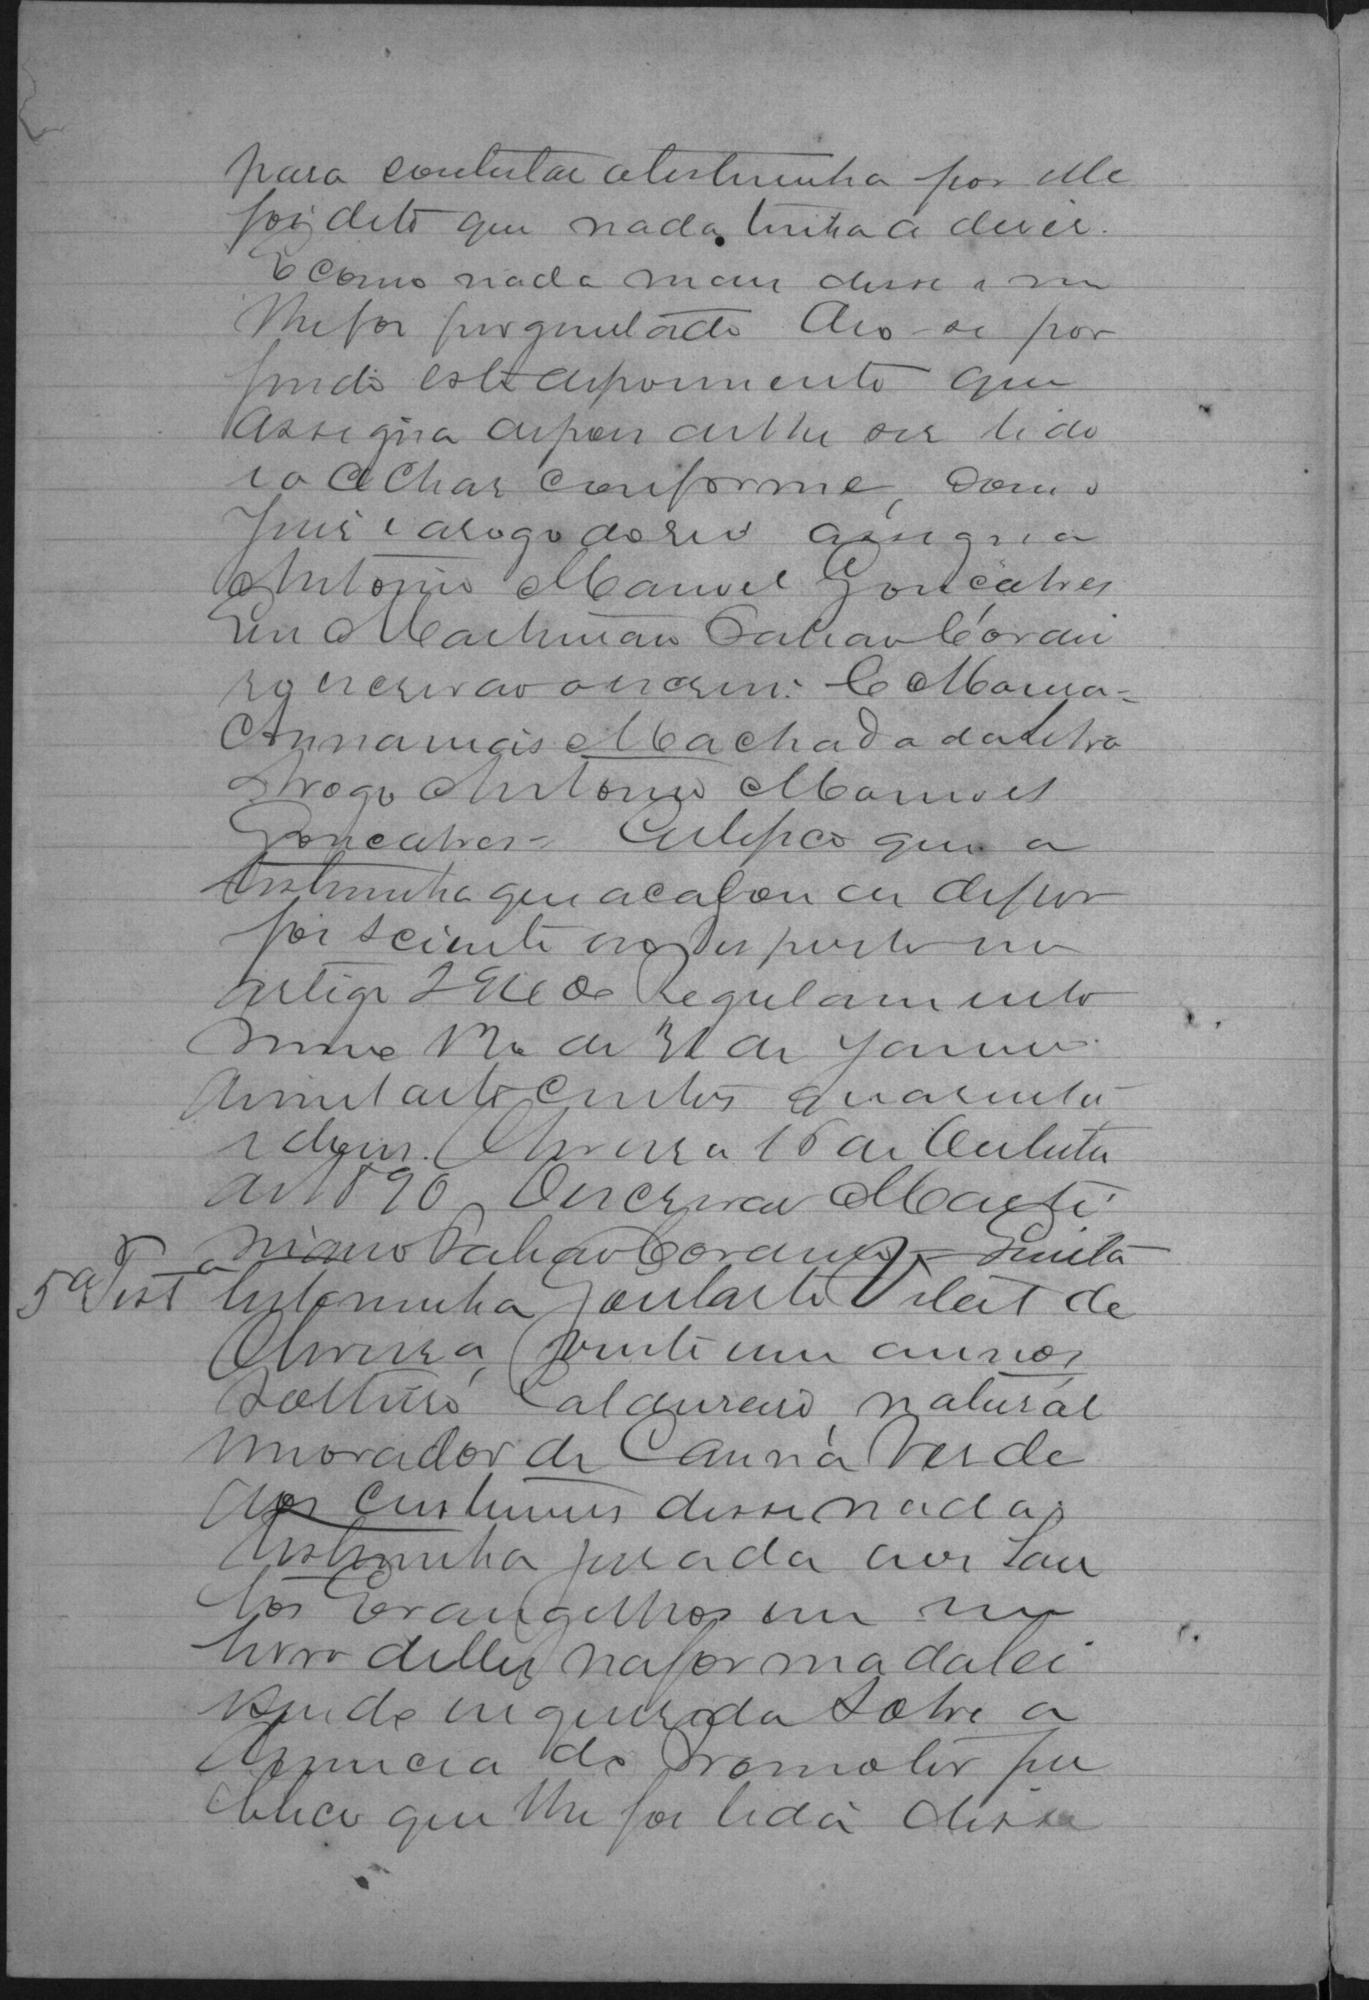 para contestar a testemunha por elle
foi dito que nada tinha a dizer.
E como nada mais disse e nem
lhe foi perguntado deo-se por
findo este depoimento que
assigna depois de lhe ser lido
e o achar conforme, com o
Juiz e a rogo do reo assigna
Antonio Manoel Gonçalves
Eu Martiniano
escrivão o escrevi. C Moura=
Annanias Machado da Silva
Arogo Antonio Manoel
Gonçalves= Certifico que a
testemunha que acabou de depor
foi sciente do disposto no
artigo do Regulamento
de 31 de Janeiro
de mil oito centos quarenta
e dous. Oliveira 16 de
de 1890 O escrivão Marti
niano Quinta
5ª Test.ª testemunha Goularte de
Oliveira, vinte um annos,
solteiro Caldureiro, natural
morador de Canna Verde
aos custumes disse nada,
testemunha jurada aos San
tos Evangelhos em um
livro delles na forma da lei
sendo inquerida sobre a
denuncia do Promotor pu
blico que lhe foi lida disse